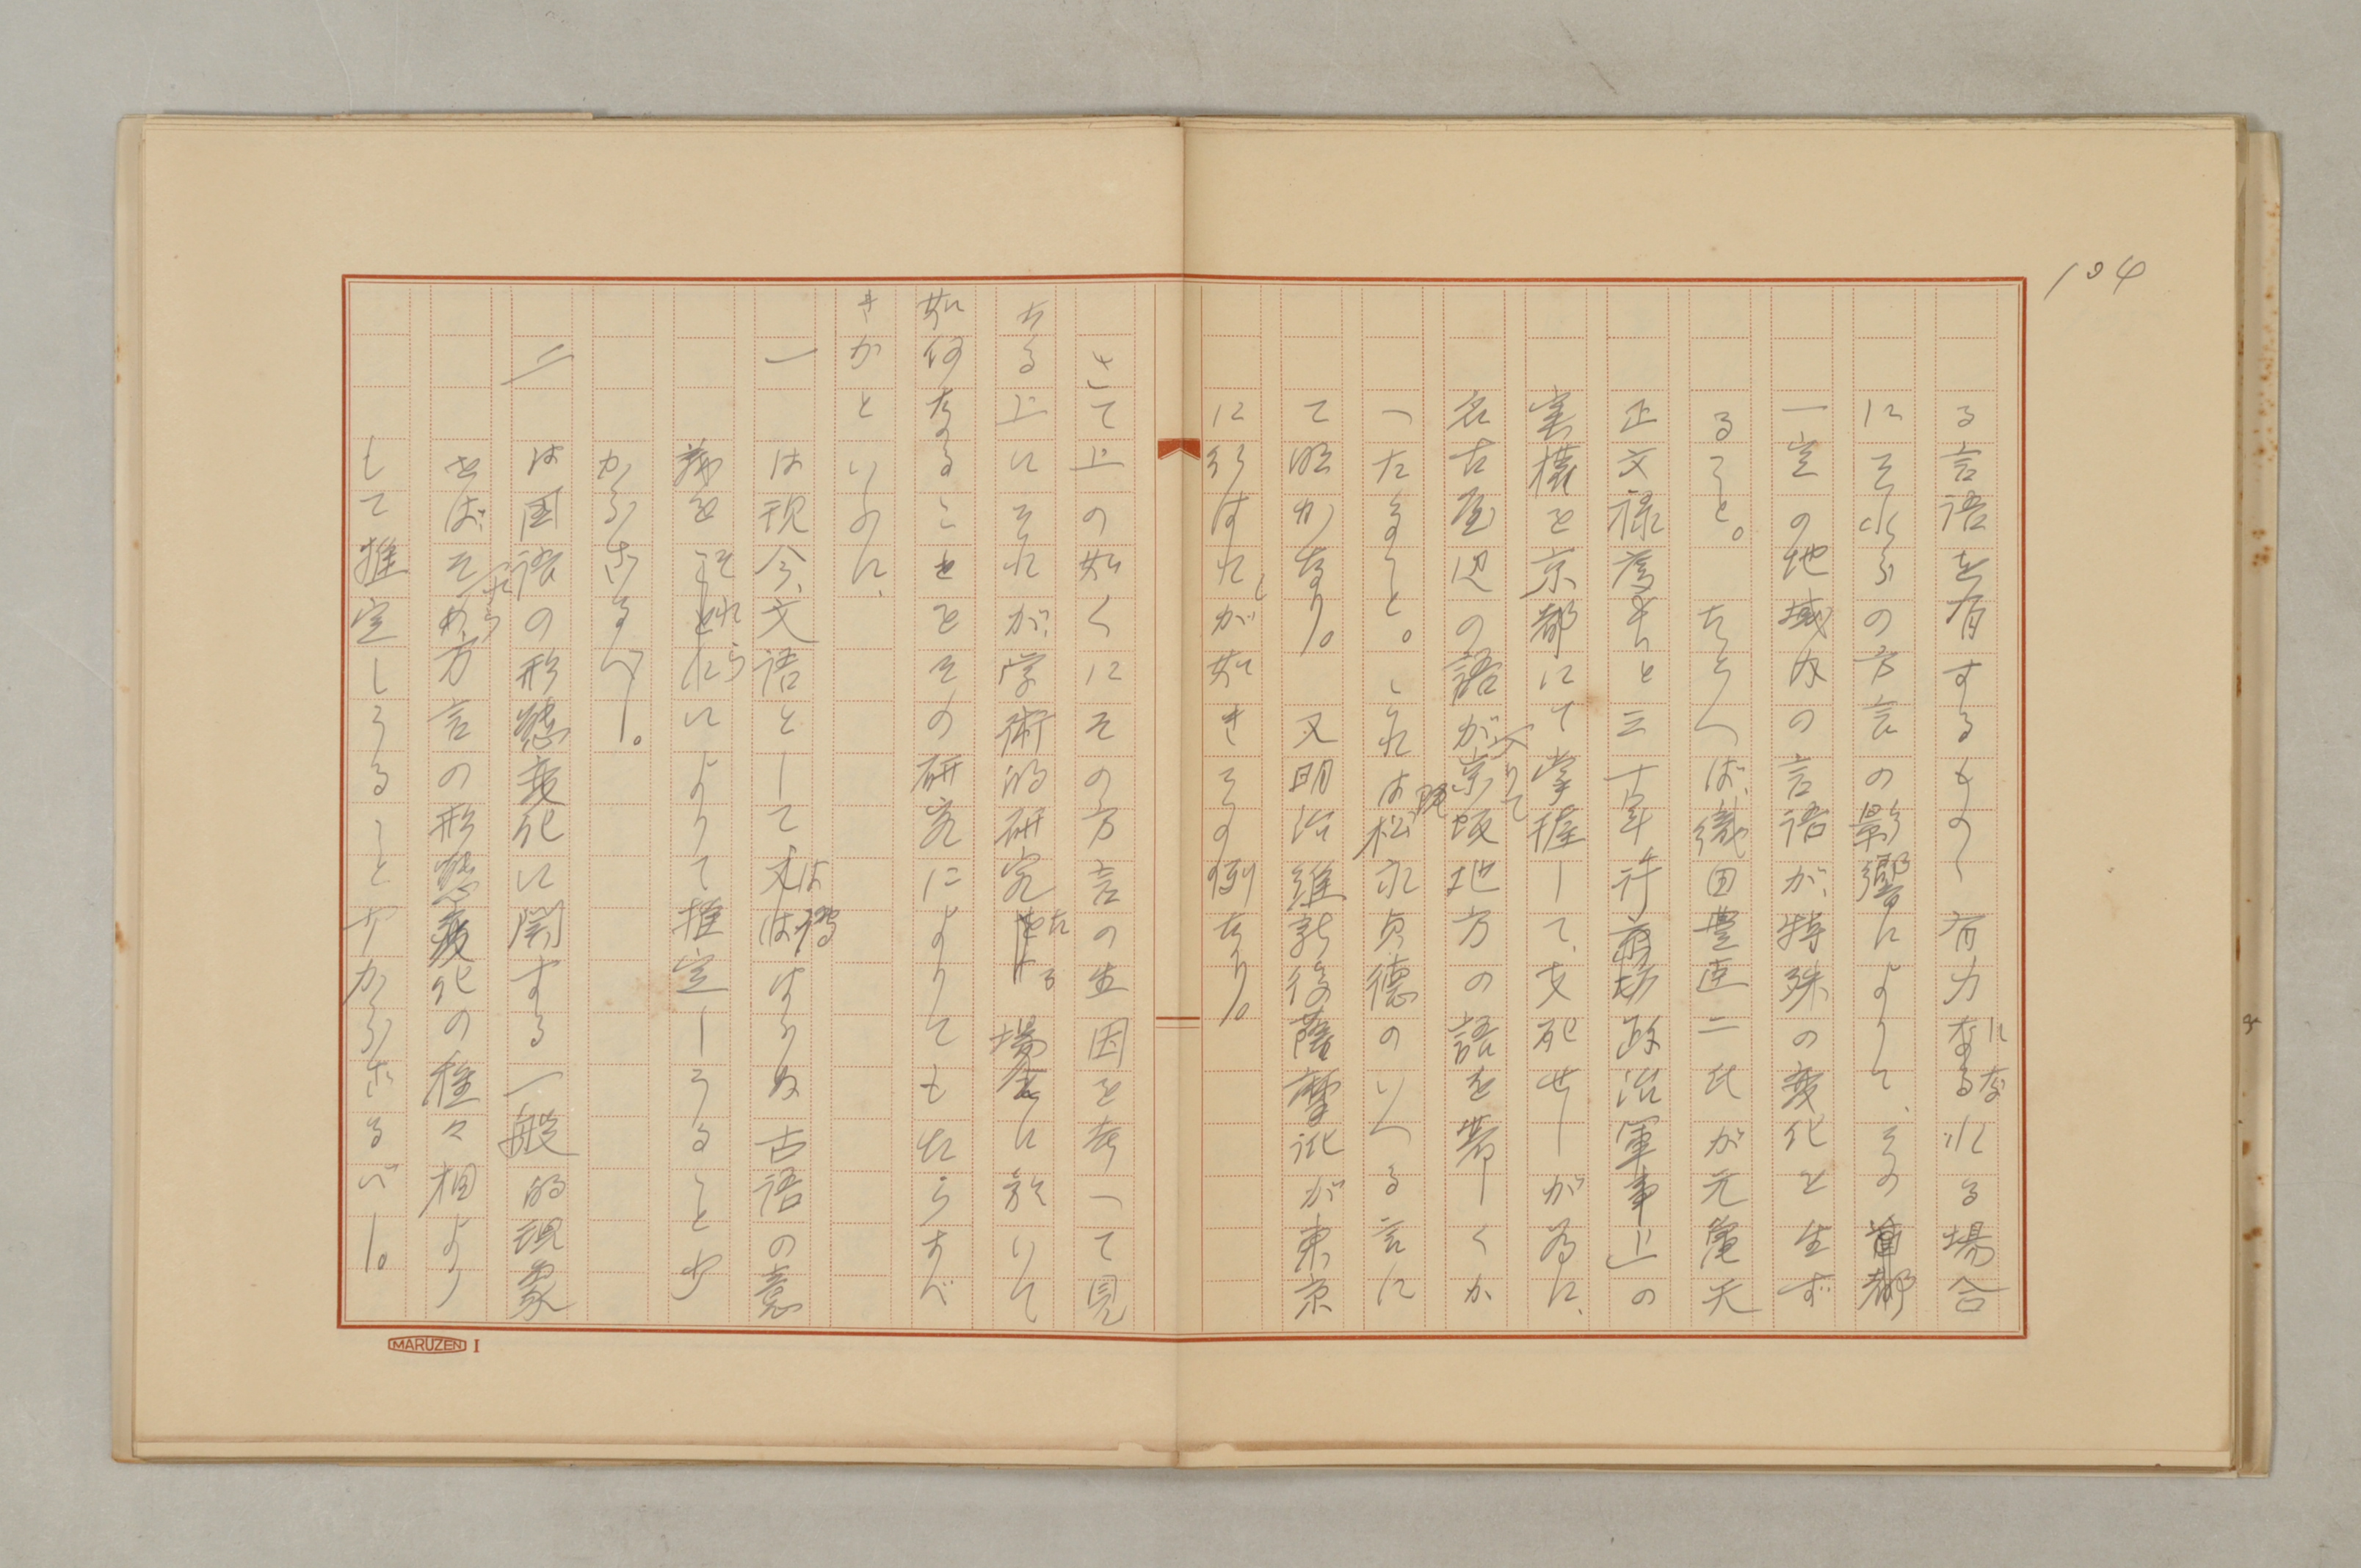 104
る言語を有するもの、有力になれる場合
にそれらの方言の影響によりて、その首都
一定の地域内の言語が、特殊の変化を生ず
ること。たとへば、織田豊臣二氏が元亀天
正文禄 と三十年許 政治軍事上の
実権を京都にて掌握して、支配せしが為に、
名古屋辺の語が入りて京阪地方の語を帯しくか
へたること。これは松永貞徳のいへる言に
て明かなり。又明治維新後薩摩訛が東京
に行はれしが如きその例なり。
さて上の如くにその方言の生因を考へて見
たる上にそれが学術的研究 たる場合に於いて
如何なることをその研究によりても知らるべ
きかといふのに、
一 は現今、文語としては行はれぬ古語の意
義をそれらによりて推定しうること少
からざるべし。
二 は国語の形態変化に関する一般的現象
をばそれら方言の形態変化の種々相より
もて推定しうること少からざるべし。
MARUZEN I